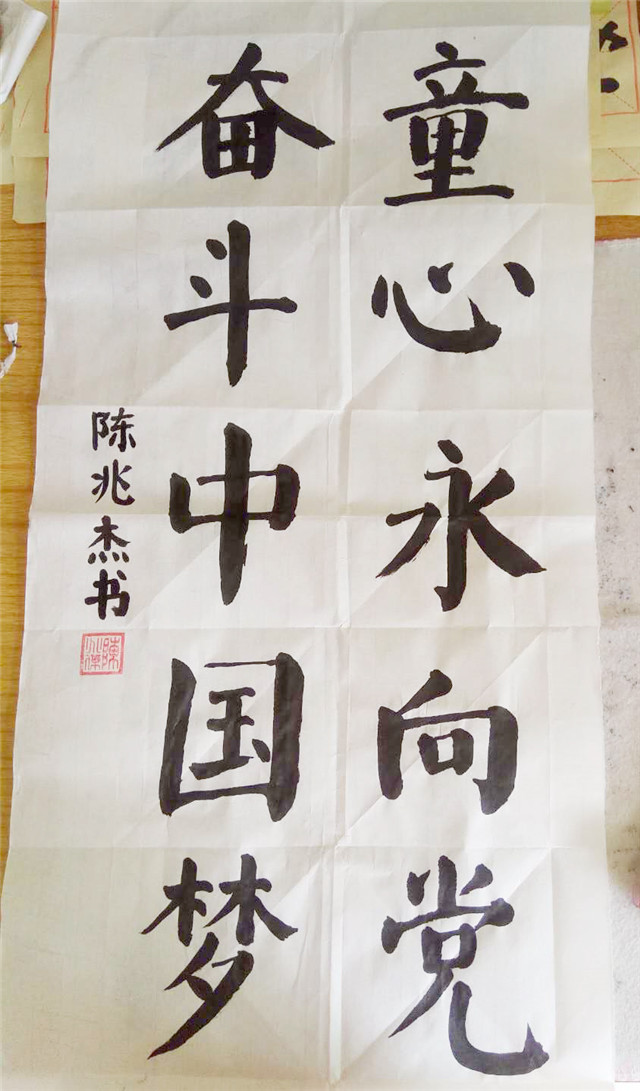 童心永向党
奋斗中国梦
陈兆杰书